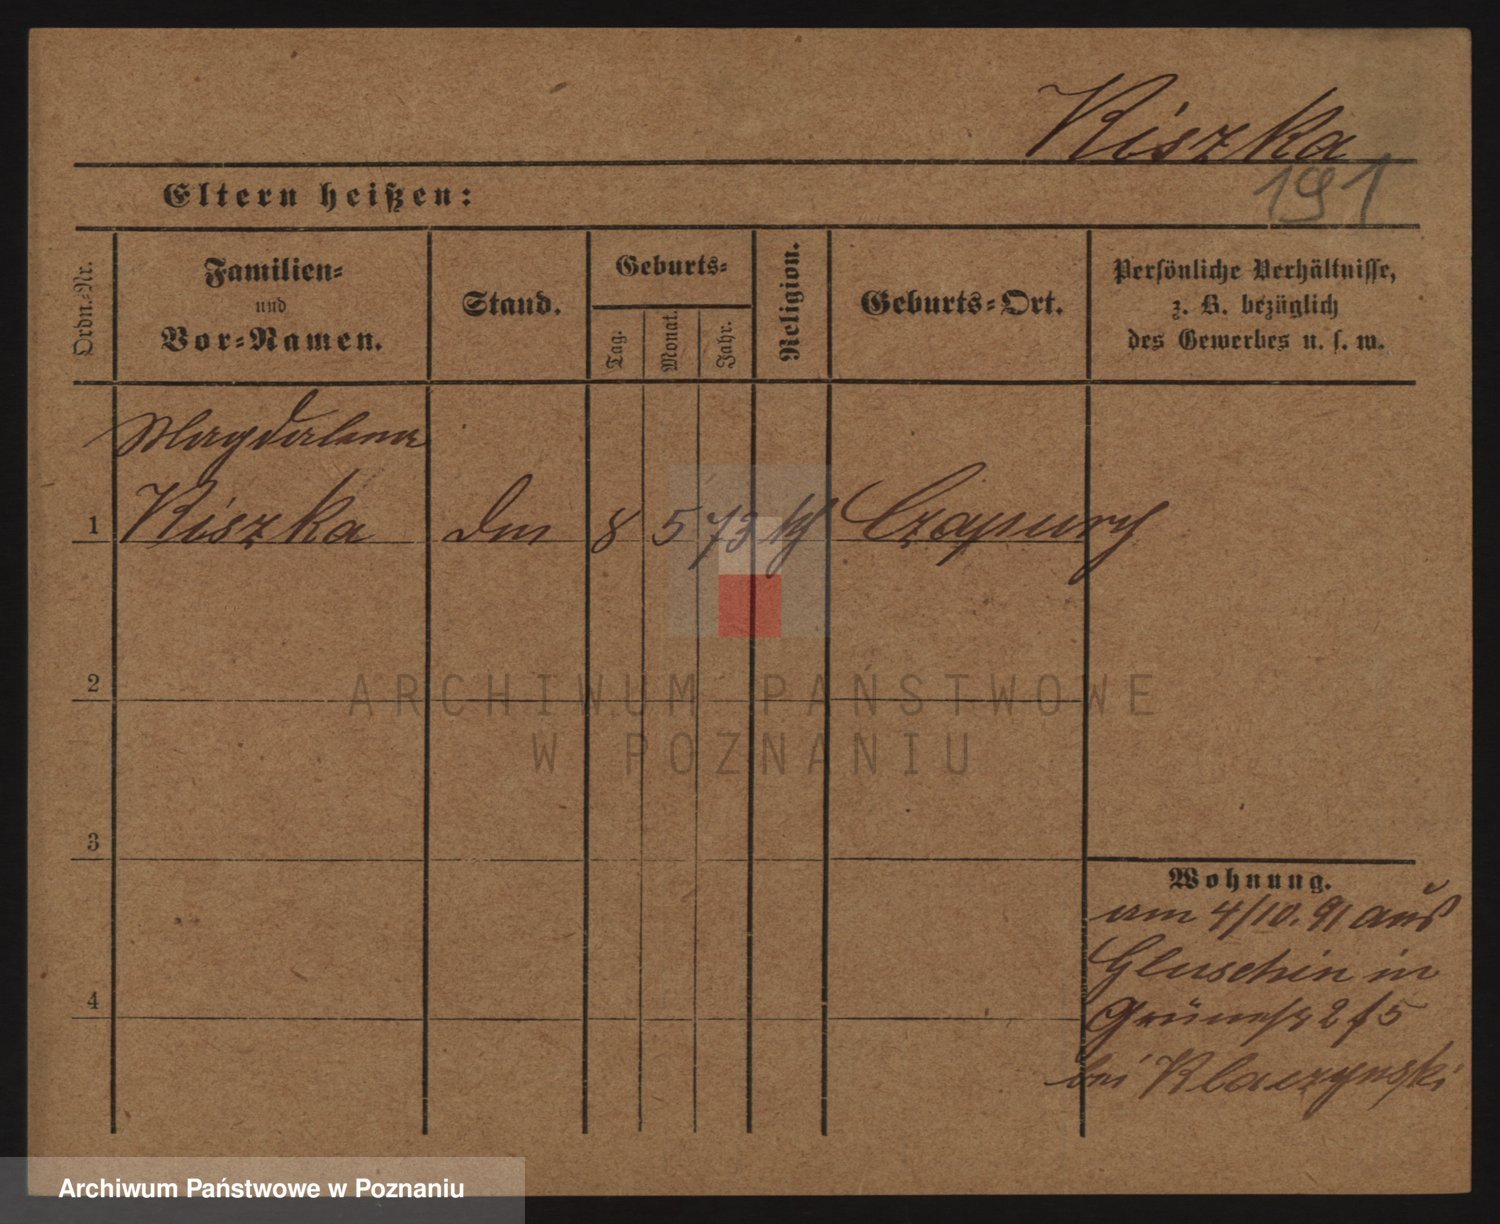 Kiszka
191
Eltern heißen:
Ordn.-Nr.
Familien-
und
Vor-Namen.
Stand.
Geburts-
Tag.
Monat.
Jahr.
Religion.
Geburts-Ort.
Persönliche Verhältnisse,
z. B. bezüglich
des Gewerbes u. s. w.
Magdalena
1 Kiszka 8 5 73 kth Czapury
2
3
4
Wohnung.
am 4/10. 91 aus
Gluschin in
Grünestr 2
bei Klaczynski
ARCHIWUM PAŃSTWOWE
W POZNANIU
Archiwum Państwowe w Poznaniu